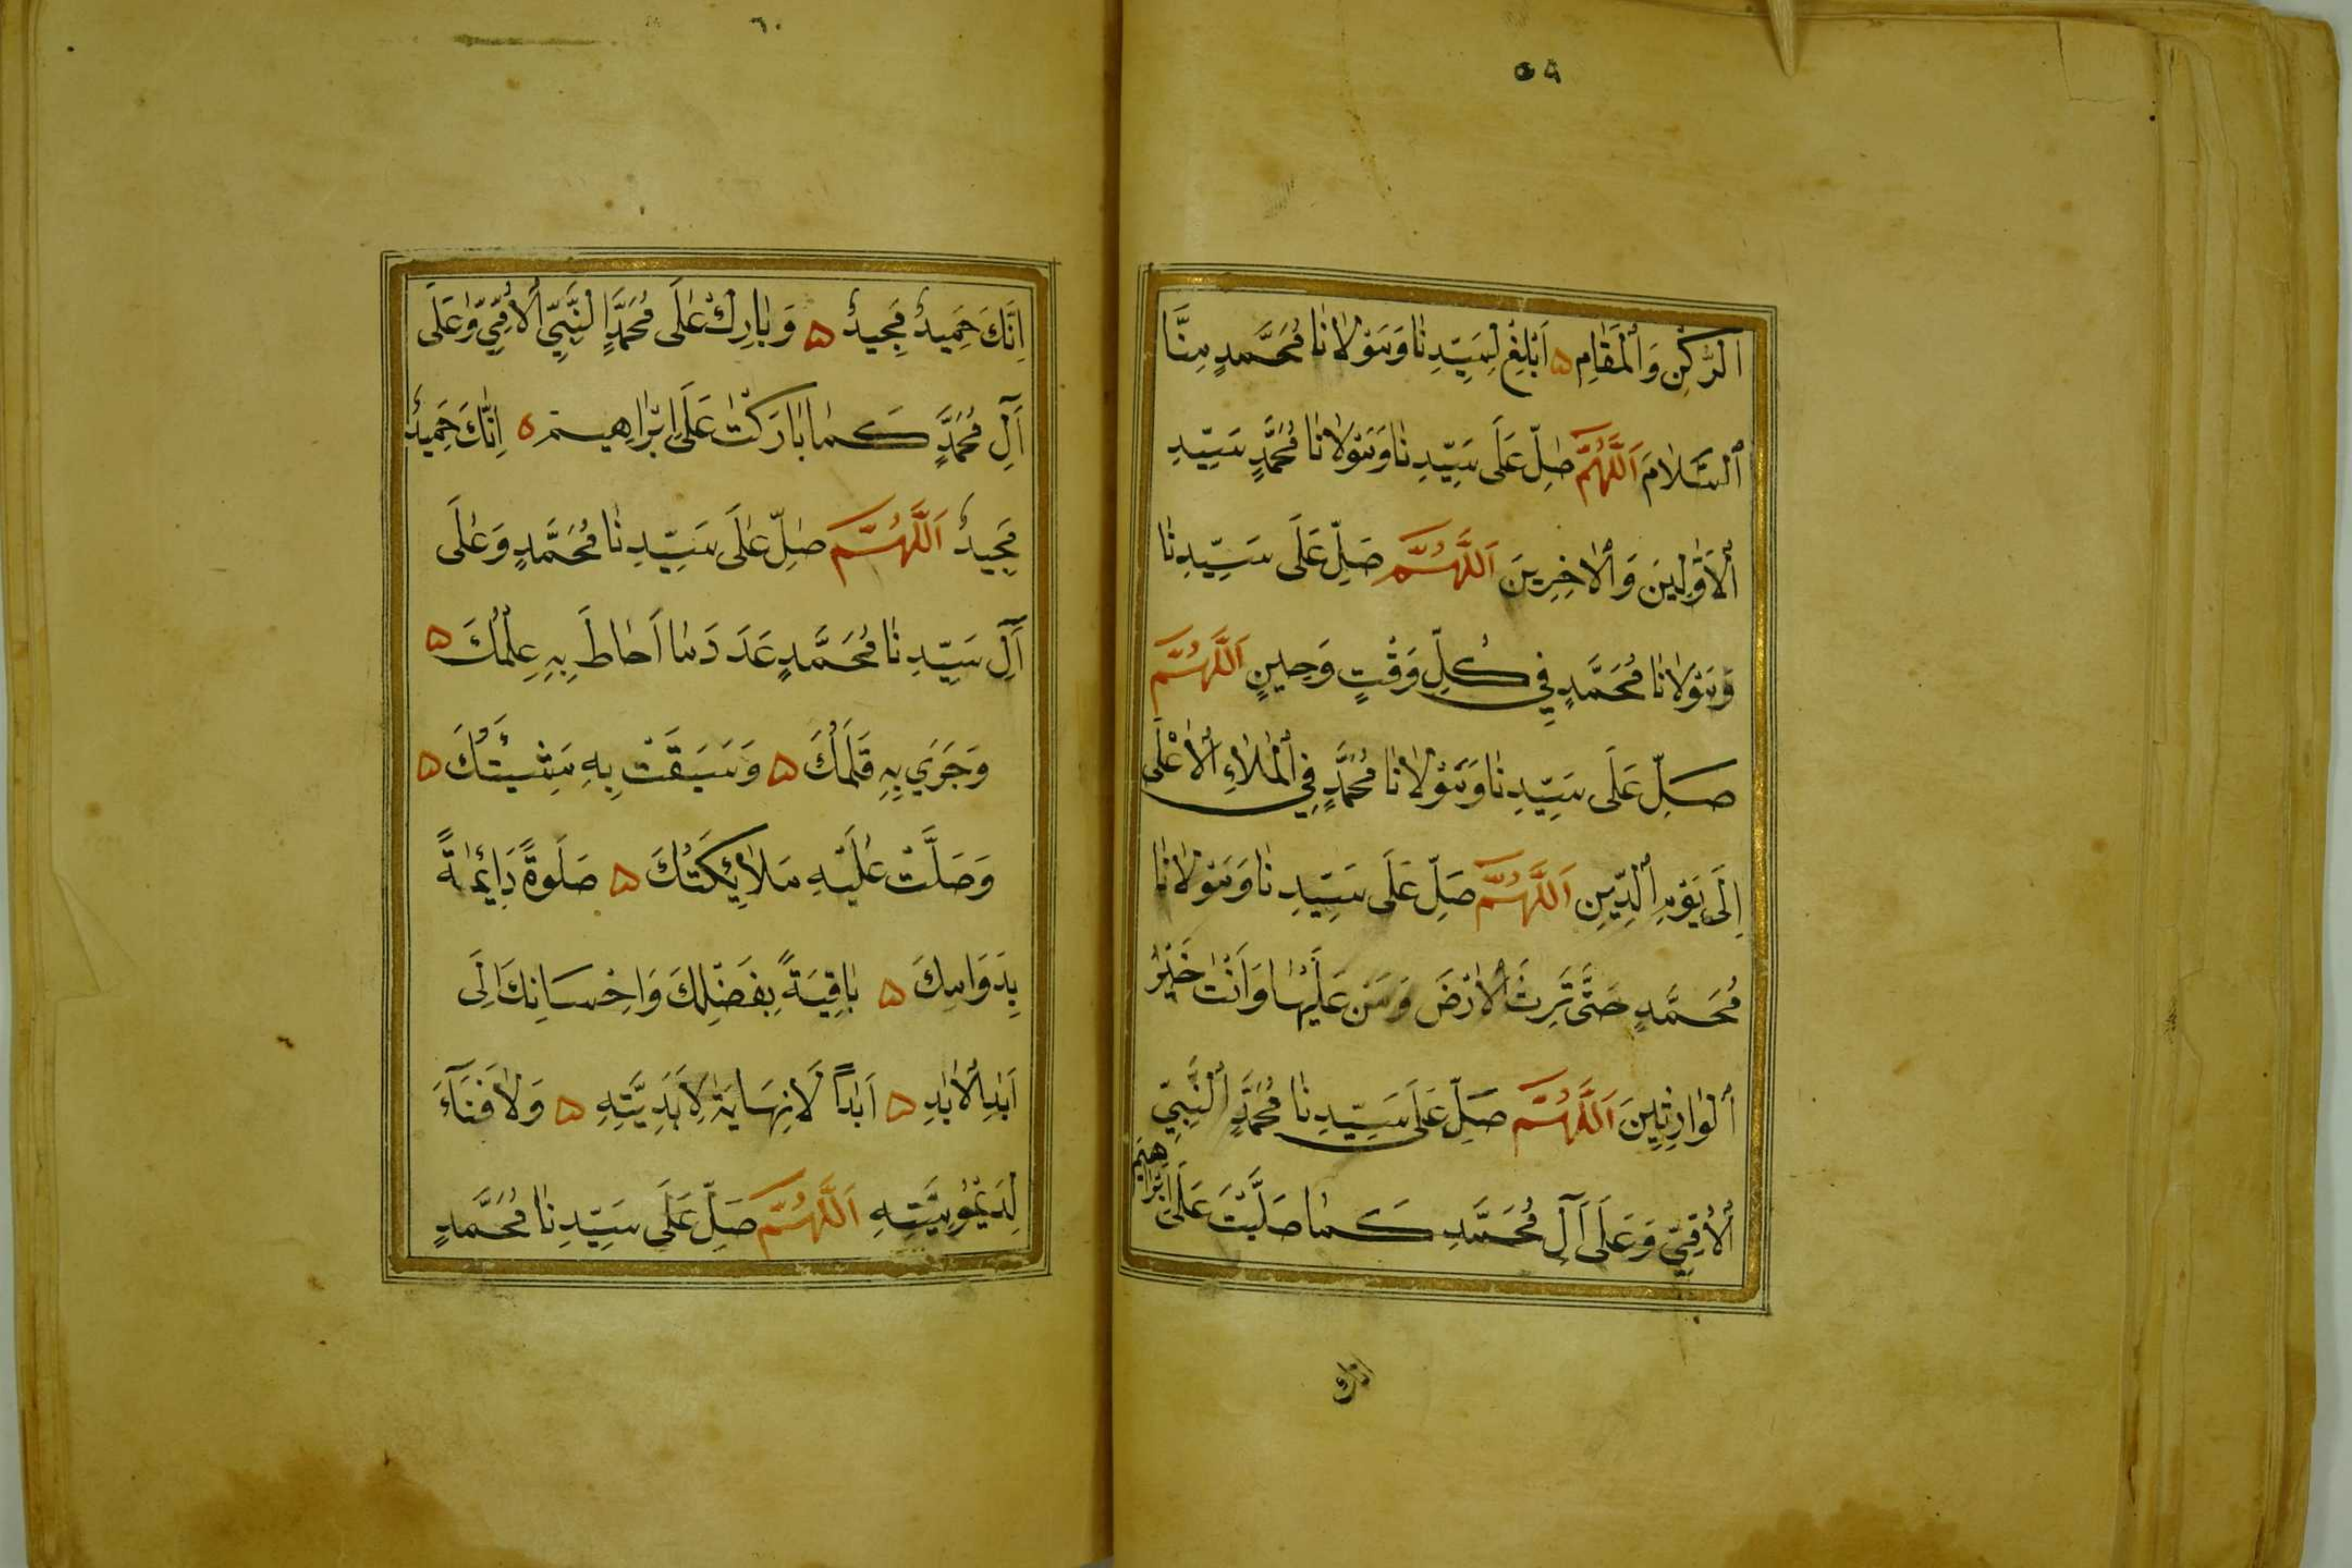 ٥٩
اَلرُّكْنِ وَالْمَقَامِ ۵ اَبْلِغْ لِسَيِّدِنَا وَمَوْلَانَا مُحَمَّدٍ مِنَّا
اَلسَّلَامَ اَللّٰهُمَّ صَلِّ عَلَى سَيِّدِنَا وَمَوْلَانَا مُحَمَّدٍ سَيِّدِ
اَلْاَوَّلِينَ وَالْاٰخِرِينَ اَللّٰهُمَّ صَلِّ عَلَى سَيِّدِنَا
وَمَوْلَانَا مُحَمَّدٍ فِي كُلِّ وَقْتٍ وَحِينٍ اَللّٰهُمَّ
صَلِّ عَلَى سَيِّدِنَا وَمَوْلَانَا مُحَمَّدٍ فِي الْمَلَاءِ الْاَعْلَى
اِلَى يَوْمِ الدِّينِ اَللّٰهُمَّ صَلِّ عَلَى سَيِّدِنَا وَمَوْلَانَا
مُحَمَّدٍ حَتَّى تَرِثَ الْاَرْضَ وَمَنْ عَلَيْهَا وَاَنْتَ خَيْرُ
اَلْوَارِثِينَ اَللّٰهُمَّ صَلِّ عَلَى سَيِّدِنَا مُحَمَّدٍ اَلنَّبِيِّ
اَلْاُمِّيِّ وَعَلَى اٰلِ مُحَمَّدٍ كَمَا صَلَّيْتَ عَلَى اِبْرَاهِيمَ
انك
٦٠
اِنَّكَ حَمِيدٌ مَجِيدٌ ۵ وَبَارِكْ عَلَى مُحَمَّدٍ اَلنَّبِيِّ الْاُمِّيِّ وَعَلَى
اٰلِ مُحَمَّدٍ كَمَا بَارَكْتَ عَلَى اِبْرَاهِيمَ ۵ اِنَّكَ حَمِيدٌ
مَجِيدٌ اَللّٰهُمَّ صَلِّ عَلَى سَيِّدِنَا مُحَمَّدٍ وَعَلَى
اٰلِ سَيِّدِنَا مُحَمَّدٍ عَدَدَ مَا اَحَاطَ بِهِ عِلْمُكَ ۵
وَجَرَي بِهِ قَلَمُكَ ۵ وَسَبَقَتْ بِهِ مَشِيئَتُكَ ۵
وَصَلَّتْ عَلَيْهِ مَلَائِكَتُكَ ۵ صَلٰوةً دَائِمَةً
بِدَوَامِكَ ۵ بَاقِيَةً بِفَضْلِكَ وَاِحْسَانِكَ اِلَى
اَبَدِ الْاَبَدِ ۵ اَبَداً لَا نِهَايَةَ لِاَبَدِيَّتِهِ ۵ وَلَا فَنَآءَ
لِدَيْمُومِيَّتِهِ اَللّٰهُمَّ صَلِّ عَلَى سَيِّدِنَا مُحَمَّدٍ